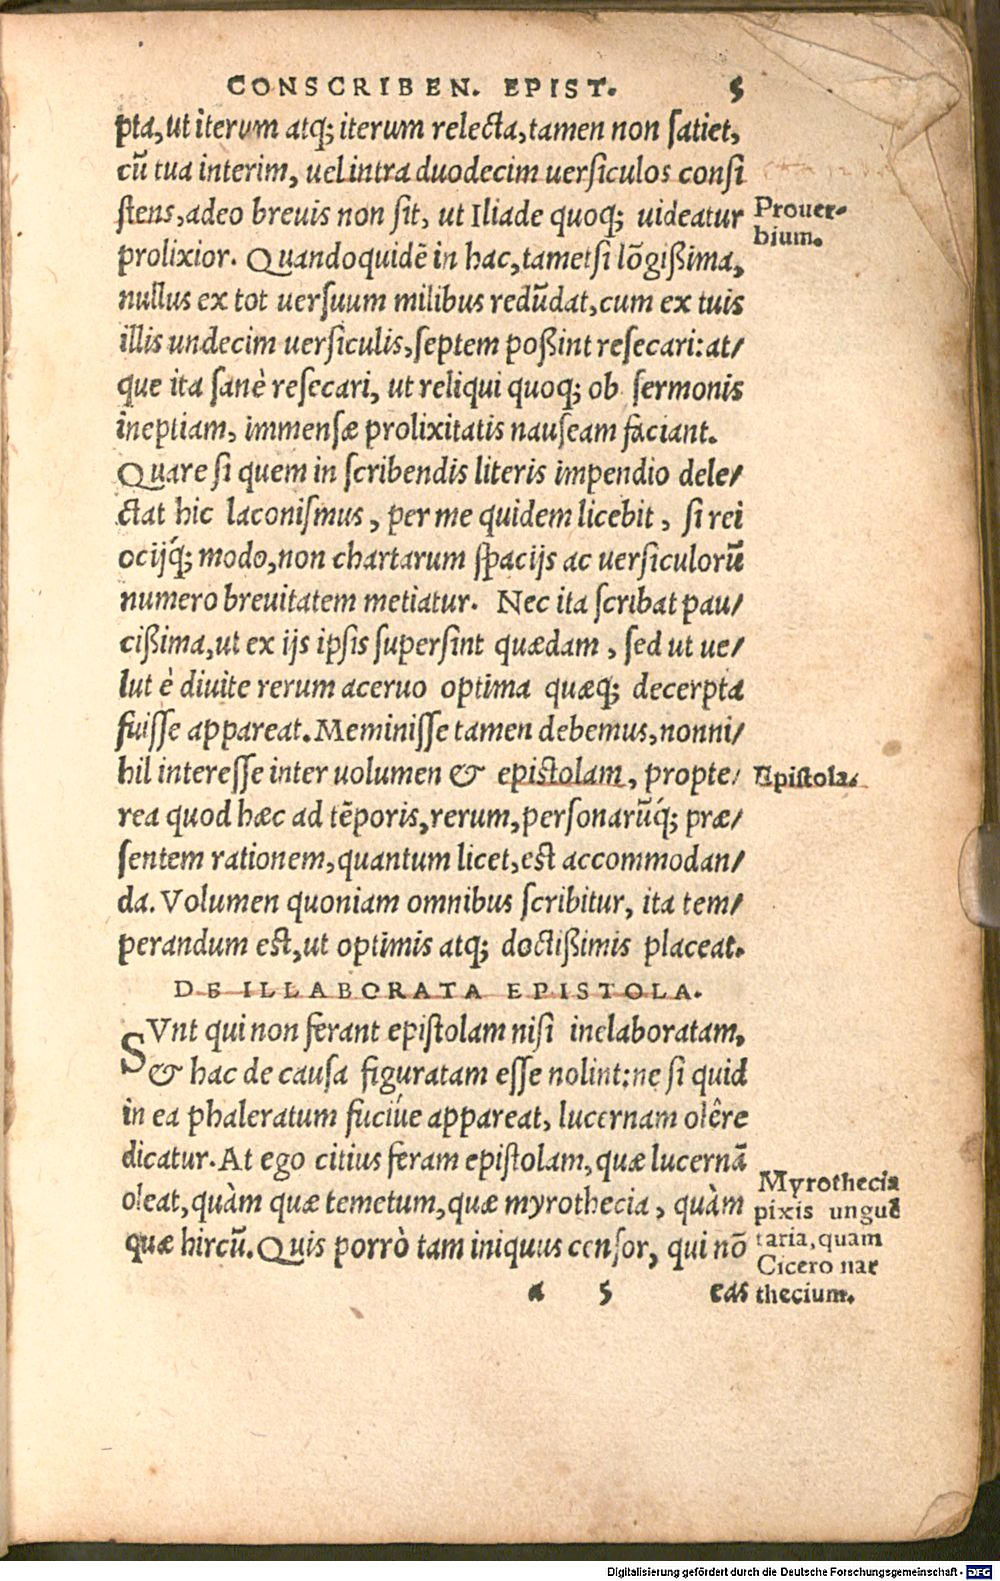 CONSCRIBEN. EPIST. 5
pta, ut iterum atq; iterum relecta, tamen non satiet,
cū tua interim, uel intra duodecim uersiculos consi
stens, adeo breuis non sit, ut Iliade quoq; uideatur
Prouer-
bium.
prolixior. Quandoquidē in hac, tametsi lōgißima,
nullus ex tot uersuum milibus redūdat, cum ex tuis
illis undecim uersiculis, septem poßint resecari: at/
que ita sanè resecari, ut reliqui quoq; ob sermonis
ineptiam, immensæ prolixitatis nauseam faciant.
Quare si quem in scribendis literis impendio dele/
ctat hic laconismus, per me quidem licebit, si rei
ocijq́; modo, non chartarum spacijs ac uersiculorū
numero breuitatem metiatur. Nec ita scribat pau/
cißima, ut ex ijs ipsis supersint quædam, sed ut ue/
lut è diuite rerum aceruo optima quæq; decerpta
fuisse appareat. Meminisse tamen debemus, nonni/
hil interesse inter uolumen & epistolam, propte/
Epistola.
rea quod hæc ad tēporis, rerum, personarūq́; præ/
sentem rationem, quantum licet, est accommodan/
da. Volumen quoniam omnibus scribitur, ita tem/
perandum est, ut optimis atq; doctißimis placeat.
DE ILLABORATA EPISTOLA.
SVnt qui non ferant epistolam nisi inelaboratam,
& hac de causa figuratam esse nolint: ne si quid
in ea phaleratum fuciúe appareat, lucernam olêre
dicatur. At ego citius feram epistolam, quæ lucernā
oleat, quàm quæ temetum, quæ myrothecia, quàm
quæ hircū. Quis porrò tam iniquus censor, qui nō
Myrothecia
pixis unguē
taria, quam
Cicero nar
thecium.
a 5 eas
Digitalisierung gefördert durch die Deutsche Forschungsgemeinschaft - DFG